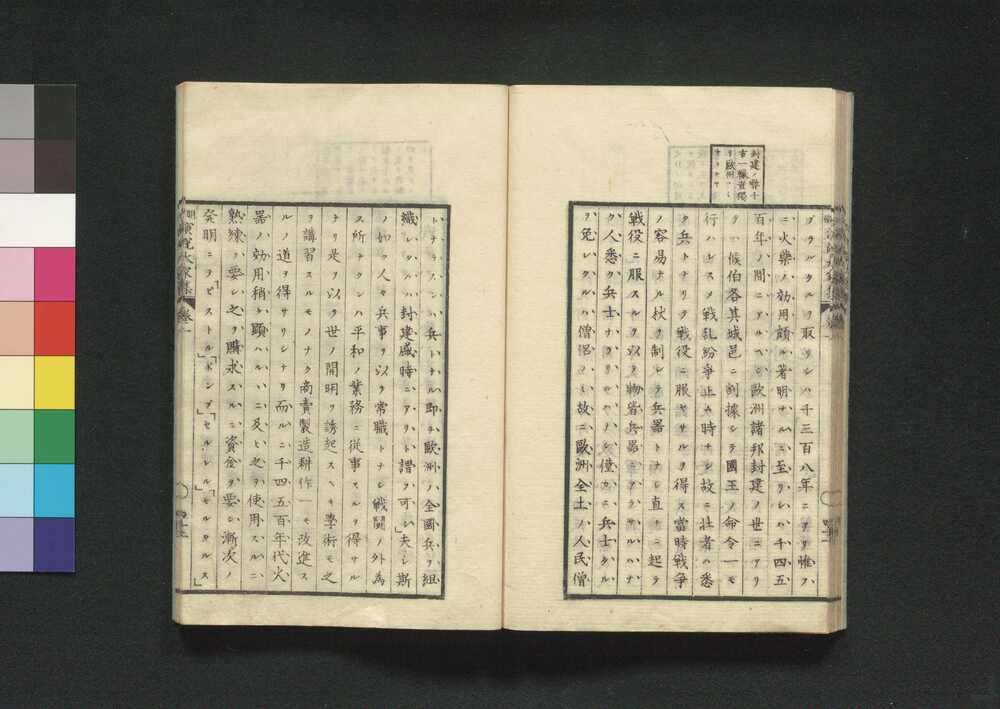 封建ノ弊千
古一轍豈獨
リ歐洲
ブラルタルヲ取リシハ千三百八年ニアリ惟フ
ニ火藥ノ効用頗ル著明ナルニ至リシハ千四五
百年ノ間ニアルヘシ歐洲諸邦封建ノ世ニアリ
テハ候伯各其城邑ニ割據シテ國王ノ命令一モ
行ハレス戰乱紛爭止ム時ナシ故ニ壮者ハ悉
ク兵トナリテ戰役ニ服セサルヲ得ス當時戰爭
ノ容易ナル杖ヲ制シテ兵器トナシ直チニ起テ
戰役ニ服スルヲ以テ物皆兵器ニアラサルハナ
ク人悉ク兵士ナラサルハナシ僅カニ兵士タル
ヲ免レタルハ僧侶ノミ故ニ歐洲全土ノ人民僧
トナラスンハ兵トナル即チ歐洲ハ全國兵ヲ組
織シタルハ封建盛時ニアリト謂フ可シ」夫レ斯
ノ如ク人々兵事ヲ以テ常職トナシ戰鬪ノ外為
ス所ナクンハ平和ノ業務ニ從事スルヲ得サル
ナリ是ヲ以テ世ノ開明ヲ誘起スヘキ學術モ之
ヲ講習スルモノナク商賣製造耕作一モ改進ス
ルノ道ヲ得サリシナリ而ルニ千四五百年代火
器ノ効用稍ク顕ハルヽニ及ヒ之ヲ使用スルニ
熟練ヲ要シ之ヲ購求スルニ資金ヲ要シ漸次ノ
発明ニテ「ピストル」「ボンブ」「セルレル」「モルタルス」